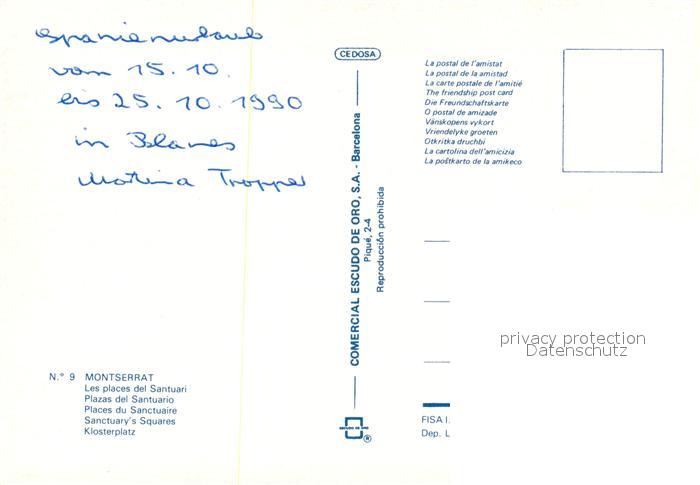 Spanienurlaub
vom 15.10.
bis 25.10.1990
in Blanes
Martina Tropper
CEDOSA
COMERCIAL ESCUDO DE ORO, S.A. - Barcelona
Piqué, 2-4
Reproducción prohibida
La postal de l'amistat
La postal de la amistad
La carte postale de l'amitié
The friendship post card
Die Freundschaftskarte
O postal de amizade
Vänskopens vykort
Vriendelyke groeten
Otkritka druchbi
La cartolina dell'amicizia
La poŝtkarto de la amikeco
privacy protection
Datenschutz
N.° 9 MONTSERRAT
Les places del Santuari
Plazas del Santuario
Places du Sanctuaire
Sanctuary's Squares
Klosterplatz
ESCUDO DE ORO
®
FISA I.
Dep. L